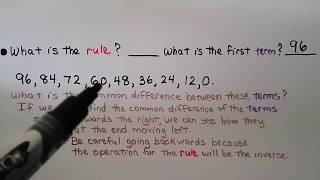 • What is the rule? ___ What is the first term? 96
96, 84, 72, 60, 48, 36, 24, 12, 0.
What is the common difference between these terms?
If we find the common difference of the terms
towards the right, we can see how they
at the end moving left.
Be careful going backwards because
the operation for the rule will be the inverse